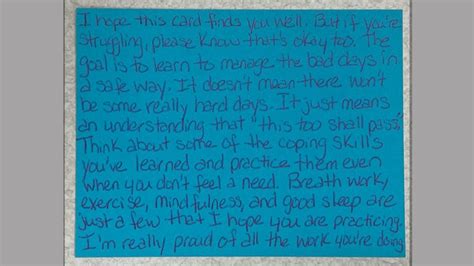 I hope this card finds you well. But if you're
struggling, please know that's okay too. The
goal is to learn to manage the bad days in
a safe way. It doesn't mean there won't
be some really hard days. It just means
an understanding that "this too shall pass."
Think about some of the coping skills
you've learned and practice them even
when you don't feel a need. Breath work,
exercise, mindfulness, and good sleep are
just a few that I hope you are practicing.
I'm really proud of all the work you're doing